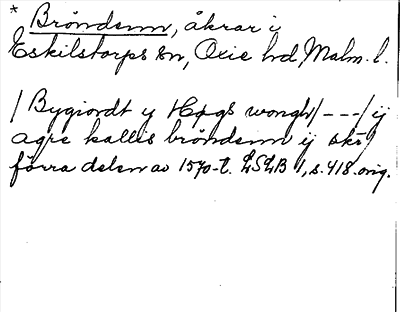 * Bröndenn, åkrar i
Eskilstorps sn, Oxie hd, Malm. l.
/ Bygiordt y Høgs wonghl/---/ ij
agre kallis bröndenn ij skr
förra delen av 1570-t. LSLB 1, s. 418. orig.